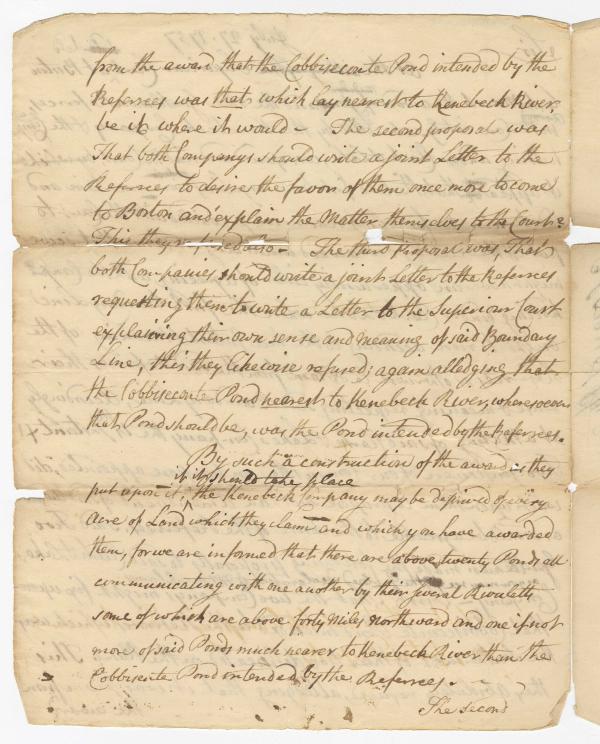 from the award that the Cobbiseconte Pond intended by the
Referrees was that which lay nearest to Kenebeck River,
be it where it would - The second proposal was
That both Companys should write a joint Letter to the
Referrees to desire the favor of them once more to come
to Boston and explain the Matter themselves to the Court
This they refused also - The third proposal was, That
both Companies should write a joint Letter to the Referrees
requesting them to write a Letter to the Superiour Court
explaining their own sense and meaning of said Boundary
Line, this they likewise refused; again alledging that
the Cobbiseconte Pond nearest to Kenebeck River, wheresoever
that Pond should be, was the Pond intended by the Referrees.
By such a construction of the award as they
if it should take place
put upon it, the Kenebeck Company may be deprived of every
acre of Land which they claim and which you have awarded
them, for we are informed that there are above twenty Ponds all
communicating with one another by their several Rivuletts
some of which are above forty Miles northward and one if not
more of said Ponds much nearer to Kenebeck River than the
Cobbiseconte Pond intended by the Referrees.
The second